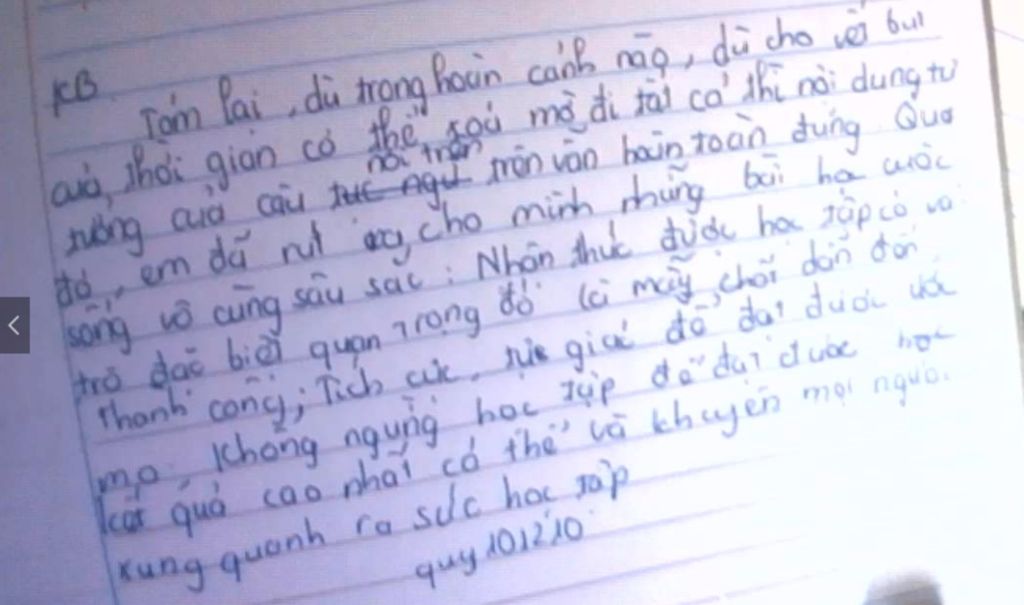 KB
Tóm lại, dù trong hoàn cảnh nào, dù cho vết bụi
của thời gian có thể xoá mờ đi tất cả thì nội dung tư
tưởng của câu nói trên vẫn hoàn toàn đúng. Qua
đó, em đã rút ra cho mình những bài học cuộc
sống vô cùng sâu sắc: Nhận thức được học tập có vai
trò đặc biệt quan trọng đó là mấy chốt dẫn đến
thành công; Tích cực, tự giác để đạt được ước
mơ; Không ngừng học tập để đạt được học
kết quả cao nhất có thể và khuyên mọi người
xung quanh ra sức học tập
quy101210